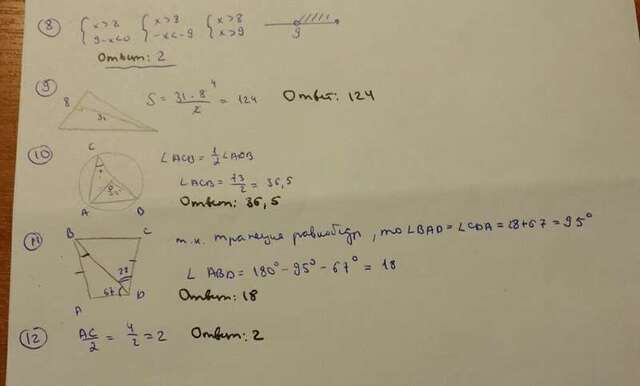 8 { x>8 9-x<0 { x>8 -x<-9 { x>8 x>9
9
Ответ: 2
9 8 31 S = 31·8/2 = 124 Ответ: 124
4
10 C A B ∠ACB = 1/2 ∠AOB
∠ACB = 73/2 = 36,5
Ответ: 36,5
11 B C т.к. трапеция равнобедр, то ∠BAD = ∠CDA = 28+67 = 95°
28 67 A D ∠ ABD = 180° - 95° - 67° = 18
Ответ: 18
12 AC/2 = 4/2 = 2 Ответ: 2